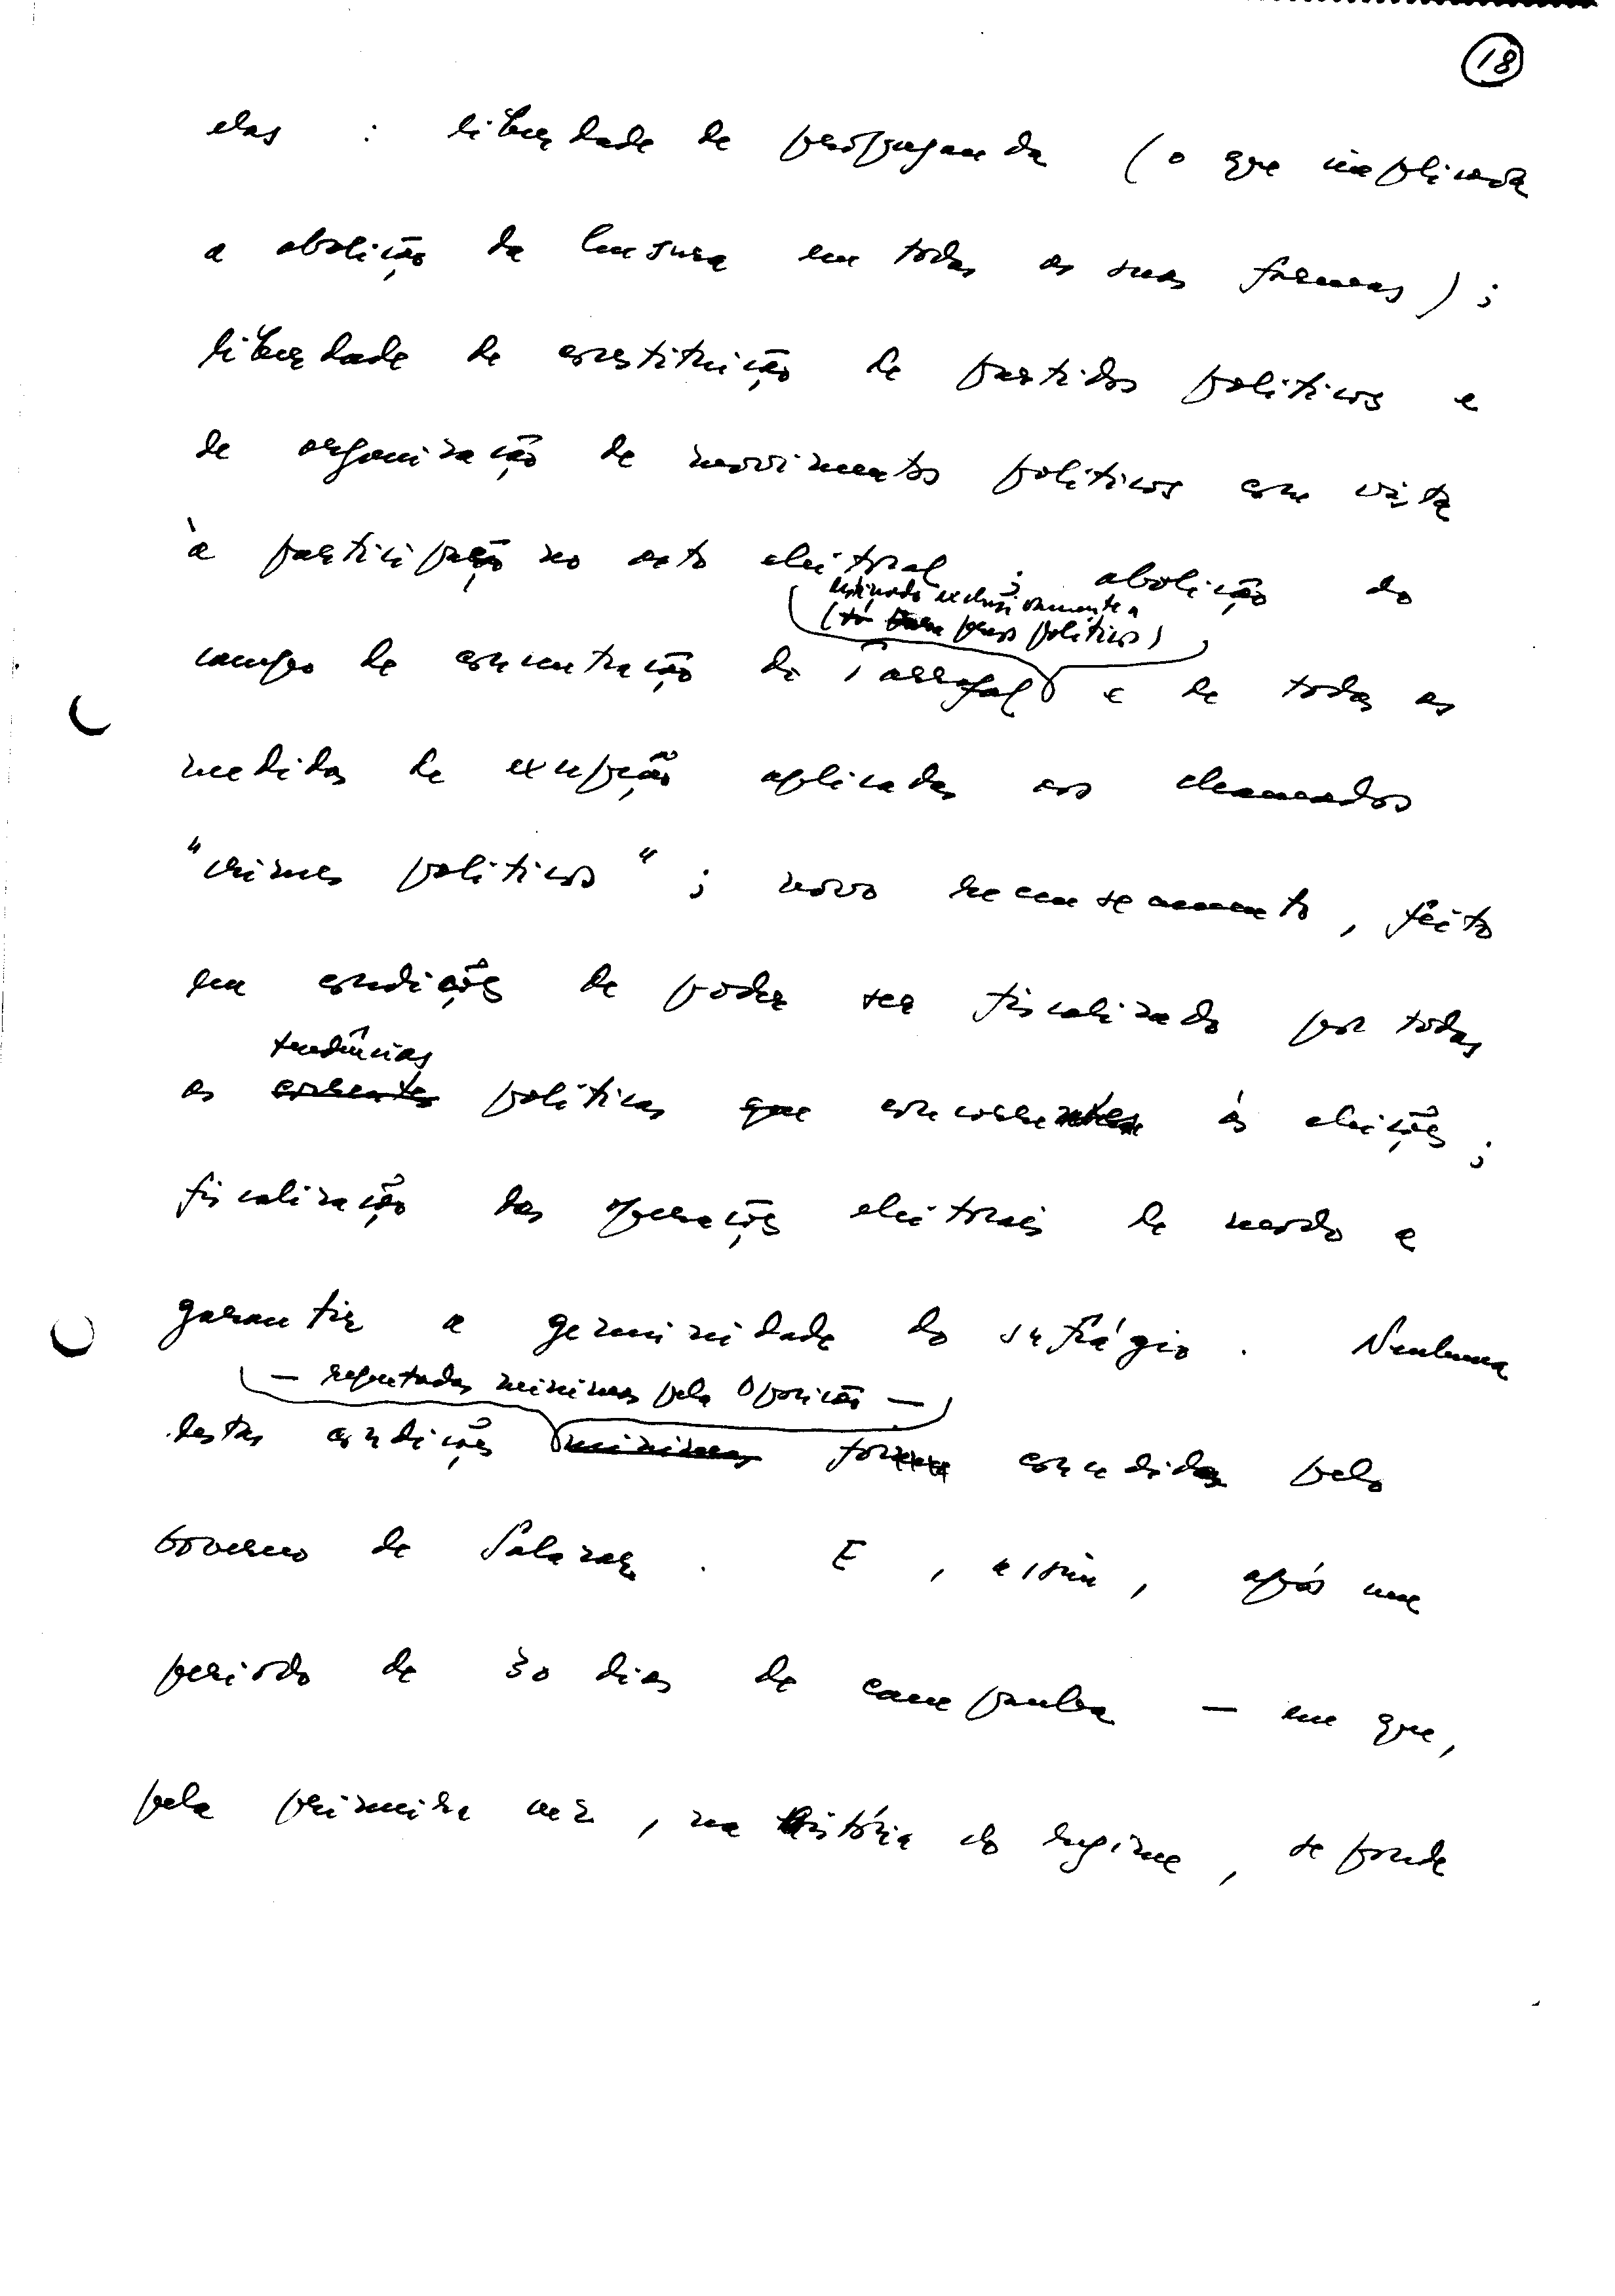 18
elas : liberdade de propaganda (o que implicava
a abolição da Censura em todas as suas formas) ;
liberdade de constituição de partidos políticos e
de organização de movimentos políticos com vista
à participação no acto eleitoral ; abolição do
destinado exclusivamente a
(só para presos políticos)
campo de concentração do Tarrafal e de todas as
medidas de excepção aplicadas aos chamados
"crimes políticos" ; novo recenseamento, feito
em condições de poder ser fiscalizado por todas
tendências
as correntes políticas que concorrem às eleições ;
fiscalização das operações eleitorais de modo a
garantir a genuinidade do sufrágio . Nenhuma
— reputadas mínimas pela Oposição —
destas condições mínimas foi concedida pelo
Governo de Salazar . E , assim , após um
período de 30 dias de campanha — em que,
pela primeira vez , na história do regime , se poude